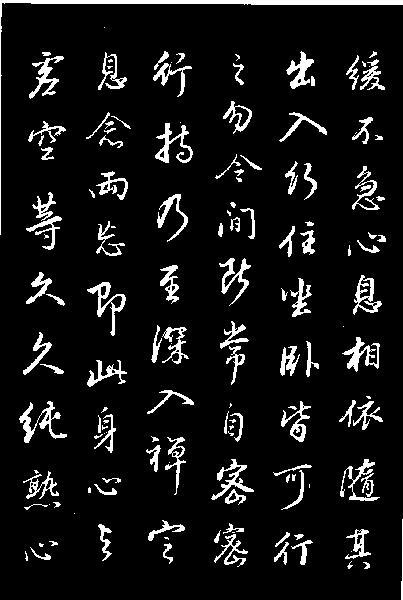 緩不急心息相依隨其
出入行住坐卧皆可行
之勿令间断常自密密
行持乃至深入禅定
息念兩忘即此身心与
虚空等久久纯熟心